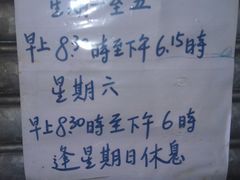 星期一至五
早上8.30時至下午6.15時
星期六
早上8.30時至下午6時
逢星期日休息